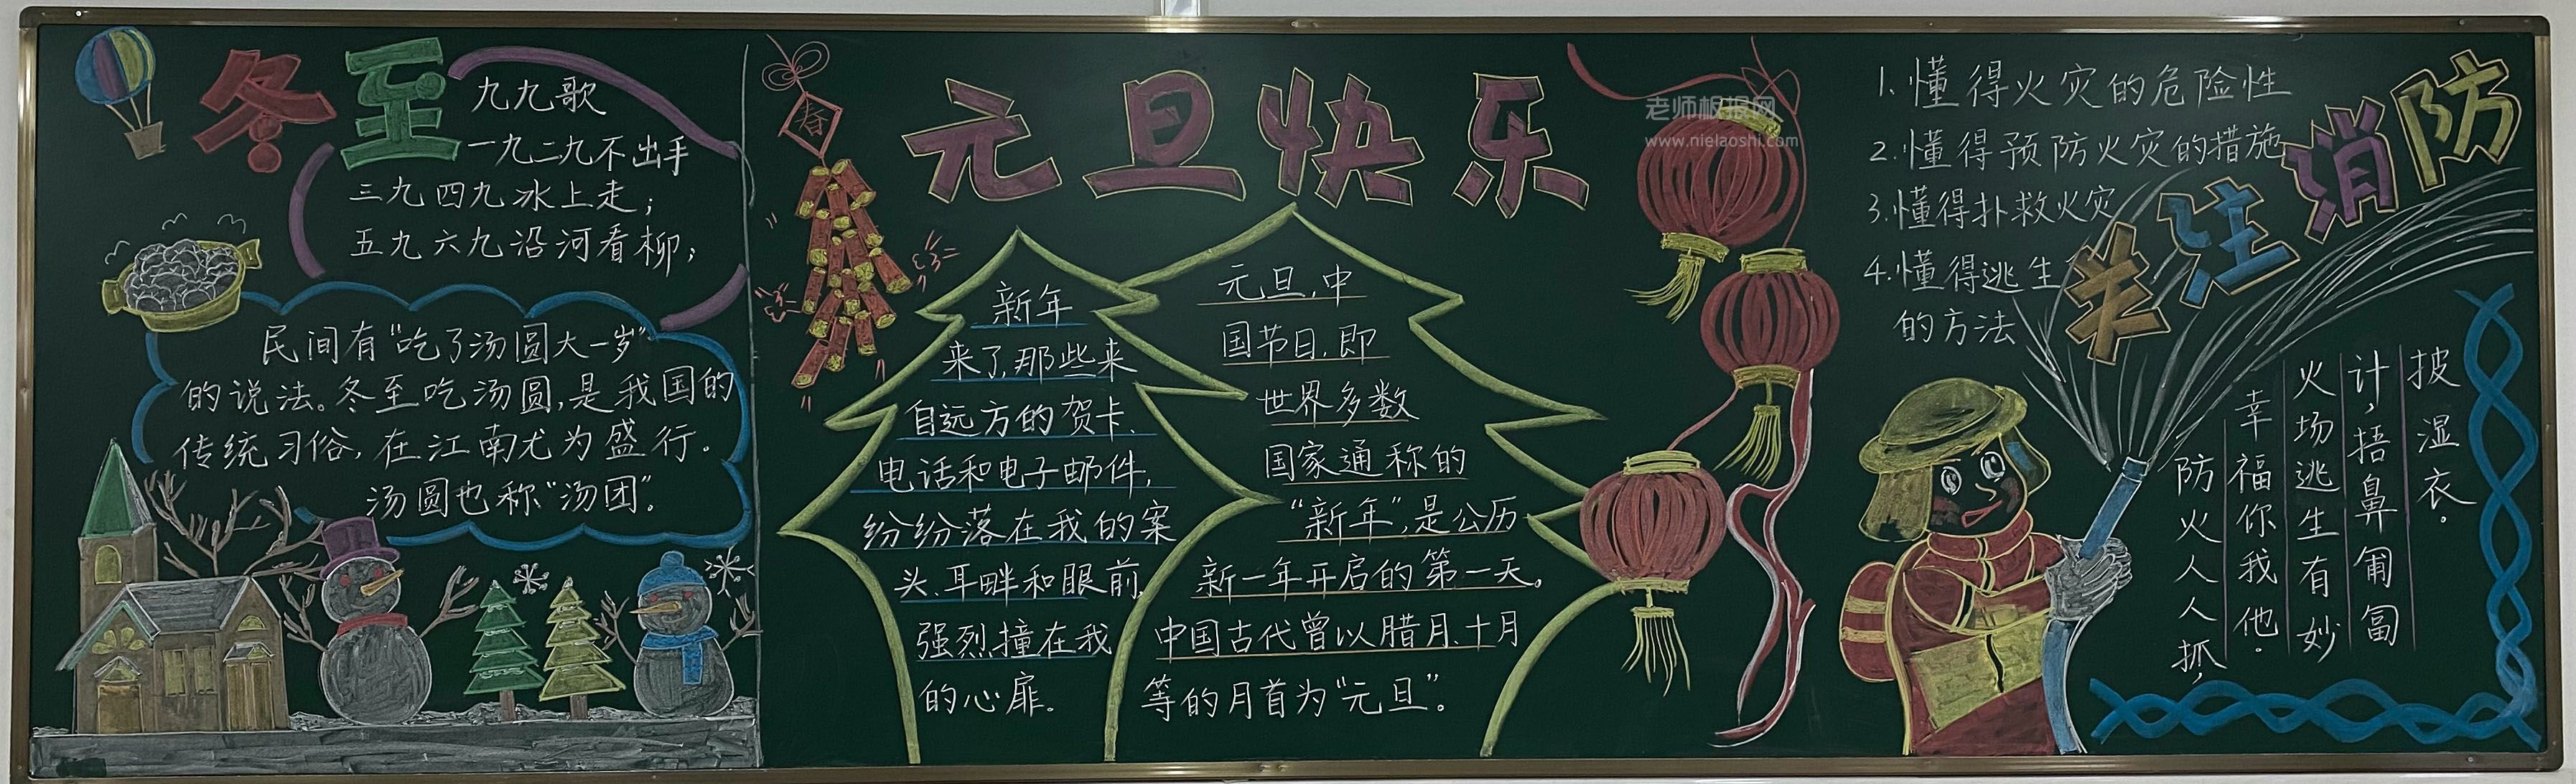 冬至
九九歌
一九二九不出手
三九四九冰上走；
五九六九沿河看柳；
民间有“吃了汤圆大一岁”
的说法。冬至吃汤圆,是我国的
传统习俗,在江南尤为盛行。
汤圆也称“汤团”。
春
元旦快乐
新年
来了,那些来
自远方的贺卡、
电话和电子邮件,
纷纷落在我的案
头、耳畔和眼前,
强烈撞在我
的心扉。
元旦,中
国节日,即
世界多数
国家通称的
“新年”,是公历
新一年开启的第一天。
中国古代曾以腊月、十月
等的月首为“元旦”。
老师板报网
www.nielaoshi.com
关注消防
1.懂得火灾的危险性
2.懂得预防火灾的措施
3.懂得扑救火灾
4.懂得逃生
的方法
防火人人抓,
幸福你我他.
火场逃生有妙
计,捂鼻匍匐
披湿衣.